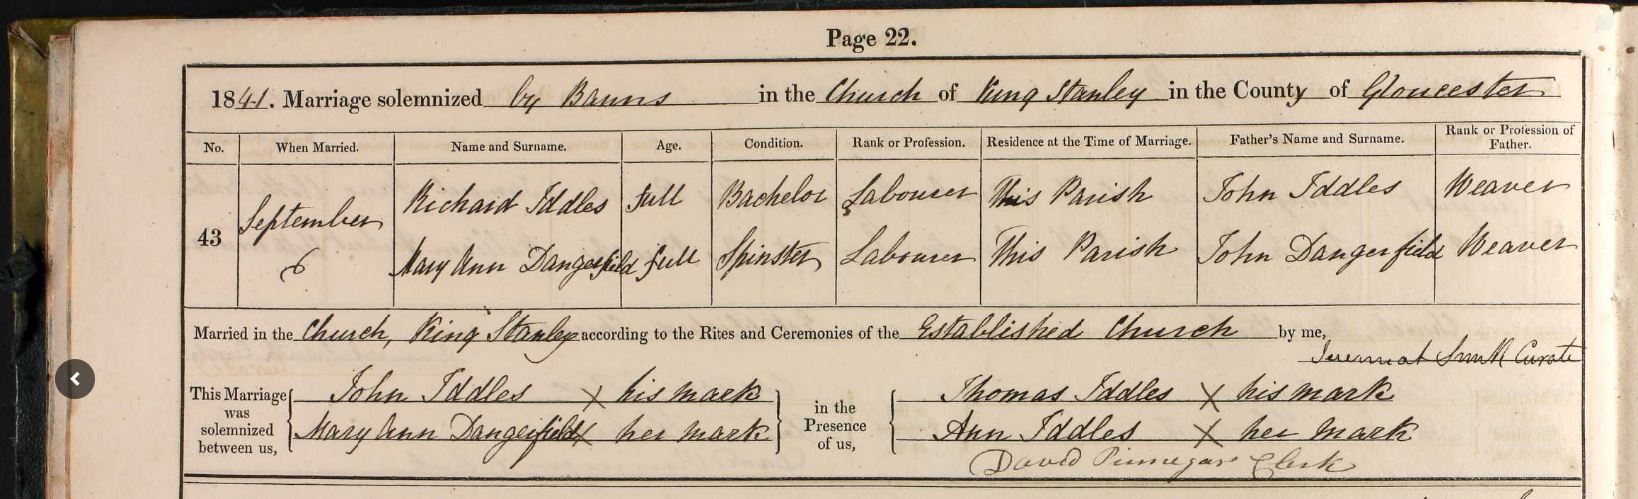 Page 22.
1841. Marriage solemnized by Banns in the Church of King Stanley in the County of Gloucester
No. When Married. Name and Surname. Age. Condition. Rank or Profession. Residence at the Time of Marriage. Father's Name and Surname. Rank or Profession of Father.
Richard Iddles full Bachelor Labourer This Parish John Iddles Weaver
43 September 6
Mary Ann Dangerfield full Spinster Labourer This Parish John Dangerfield Weaver
Married in the Church, King Stanley according to the Rites and Ceremonies of the Established Church by me,
Jeremiah Smith Curate
This Marriage was solemnized between us,
John Iddles X his mark
Mary Ann Dangerfield X her mark
in the Presence of us,
Thomas Iddles X his mark
Ann Iddles X her mark
David Clerk